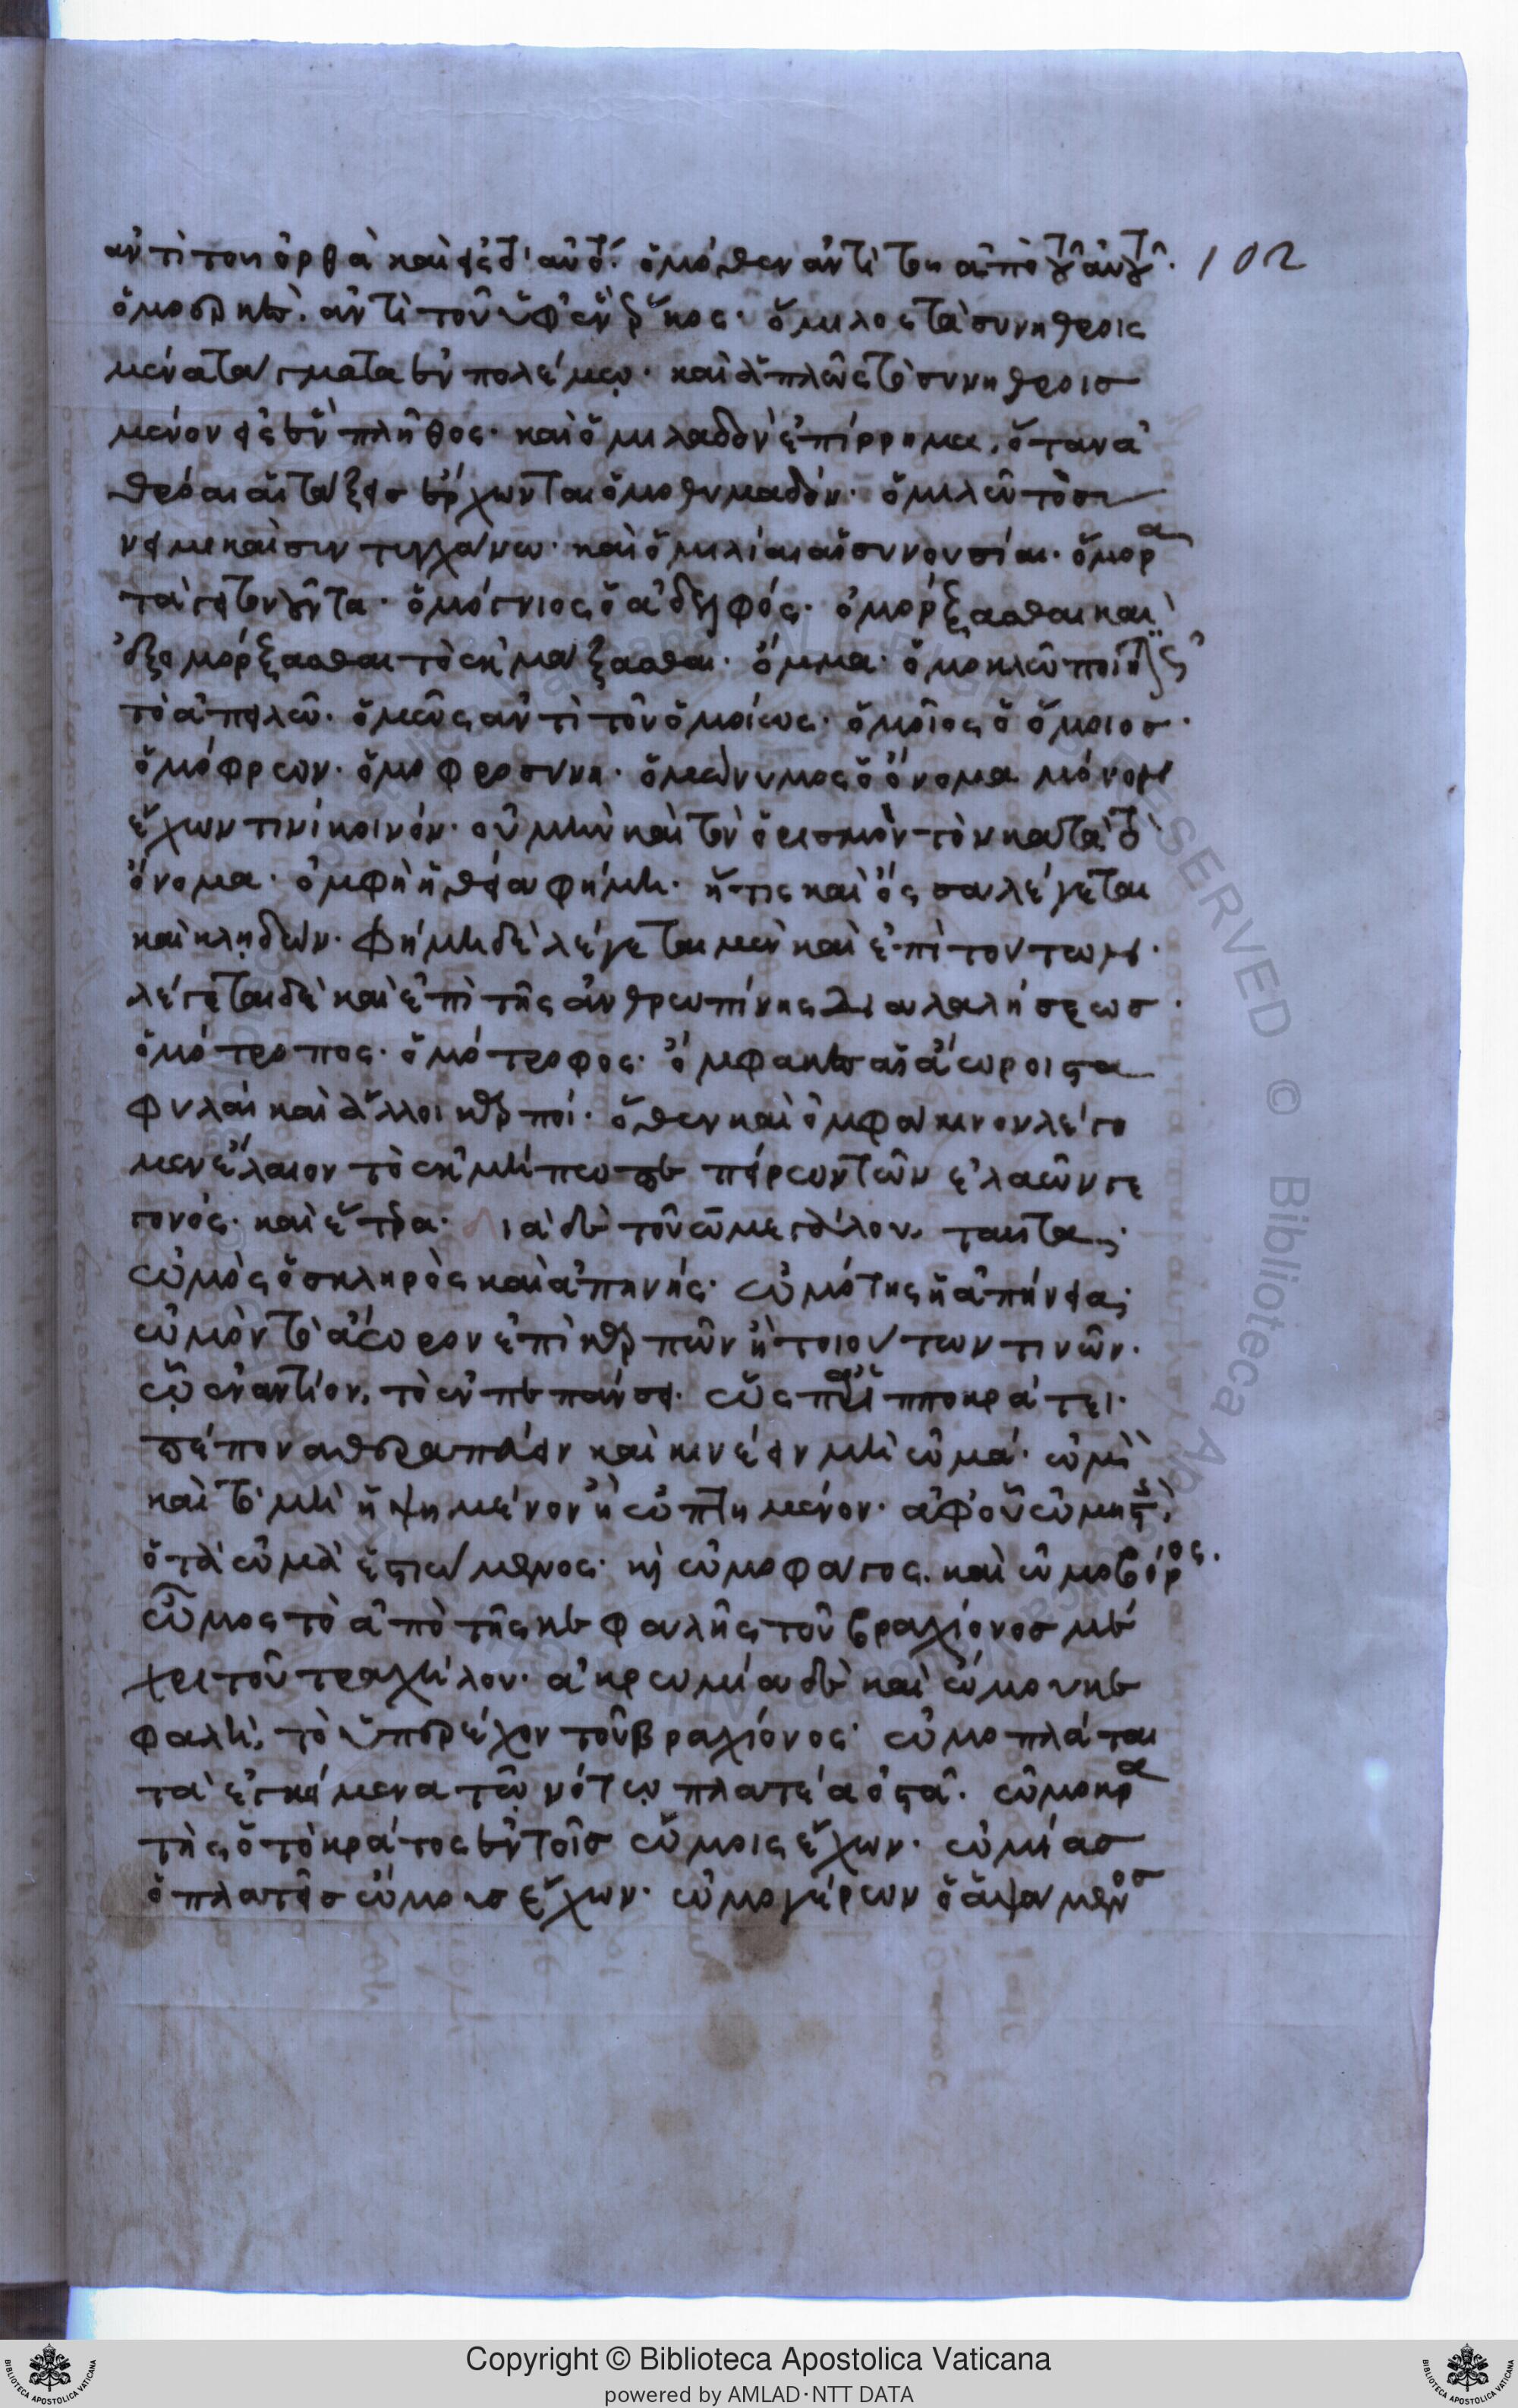 ἀντὶ τοῦ ὀρθὰ καὶ εἰς τὸ αὐτό· ὁμόθεν ἀντὶ τοῦ ἀπὸ τοῦ αὐτοῦ· 102
ἀντὶ τοῦ ὁ ὅμιλος τὰ συνηθροισ
μένα τάγματα ἐν πολέμῳ· καὶ ἁπλῶς τὸ συνηθροισ
μένον εἰς ἓν πλῆθος· καὶ ὁμιλαδὸν ἐπίρρημα, ὅταν ἀ
θρόαι αἱ τάξεις ἔρχωνται ὁμοθυμαδόν· ὁμιλῶ τὸ σύ
νειμι καὶ συντυγχάνω· καὶ ὁμιλίαι αἱ συνουσίαι· ὅμορα
τὰ γειτονοῦντα· ὁμόγνιος ὁ ἀδελφός· ὀμόρξασθαι καὶ
ἐξομόρξασθαι τὸ ἐκμάξασθαι· ὄμμα· ὁμοκλῶ
τὸ ἀπειλῶ· ὁμῶς ἀντὶ τοῦ ὁμοίως· ὁμοῖος ὁ ὅμοιος·
ὁμόφρων· ὁμοφροσύνη· ὁμώνυμος ὁ ὄνομα μόνον
ἔχων τινὶ κοινόν· οὐ μὴν καὶ τὸν ὁρισμὸν τὸν κατὰ τὸ
ὄνομα· ὀμφὴ ἡ θεία φήμη· ἥτις καὶ ὄσσα λέγεται
καὶ κληδών· φήμη δὲ λέγεται μὲν καὶ ἐπὶ τούτων·
λέγεται δὲ καὶ ἐπὶ τῆς ἀνθρωπίνης διαλαλήσεως·
ὁμότροπος· ὁμότροφος· ὄμφακες αἱ ἄωροι στα
φυλαὶ καὶ ἄλλοι καρποί· ὅθεν καὶ ὀμφάκινον λέγο
μεν ἔλαιον τὸ ἐκ μήπω πεπείρων τῶν ἐλαιῶν γε
γονός· καὶ ἕτερα· διὰ δὲ τοῦ ω μεγάλου, ταῦτα·
ὠμὸς ὁ σκληρὸς καὶ ἀπηνής· ὠμότης ἡ ἀπήνεια·
ὠμὸν τὸ ἄωρον ἐπὶ καρπῶν ἢ τοιούτων τινῶν·
ᾧ ἐναντίον, τὸ ἐν πεπάνσει· ὡς παρ' Ἱπποκράτει·
πέπονα θεραπεύειν καὶ κινέειν μὴ ὠμά· ὠμὸν
καὶ τὸ μὴ ἡψημένον ἢ ὠπτημένον· ἀφ' οὗ ὠμηστὴς
ὁ τὰ ὠμὰ ἐστιώμενος· καὶ ὠμοφάγος· καὶ ὠμοβόρος·
ὦμος τὸ ἀπὸ τῆς κεφαλῆς τοῦ βραχίονος μέ
χρι τοῦ τραχήλου· ἀκρωμία δὲ καὶ ὤμου κε
φαλή, τὸ ὑπερέχον τοῦ βραχίονος· ὠμοπλάται
τὰ ἐγκείμενα τῷ νώτῳ πλατέα ὀστᾶ· ὠμοκρα
τὴς ὁ τὸ κράτος ἐν τοῖς ὤμοις ἔχων· ὠμίας
ὁ πλατεῖς ὤμους ἔχων· ὠμογέρων ὁ ἀψάμενος
Copyright © Biblioteca Apostolica Vaticana
powered by AMLAD·NTT DATA